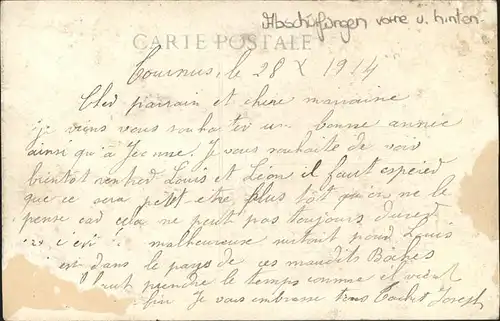 Abschürfungen vorne u. hinten
CARTE POSTALE
Tournus, le 28 X 1914
Cher parrain et chere marraine
je viens vous souhaiter une bonne année
ainsi qu'à Jeanne. Je vous souhaite de voir
bientot rentred Louis et Léon il faut espered
que ce sera petet-etre plus tôt qu'on ne le
pense cad cela ne peut pas toujours dured
malheureuse surtout poud Louis
est dans le pays de ces maudits Boches
faut prendre le temps comme il vient
fin Je vous embrasse tous Joseph